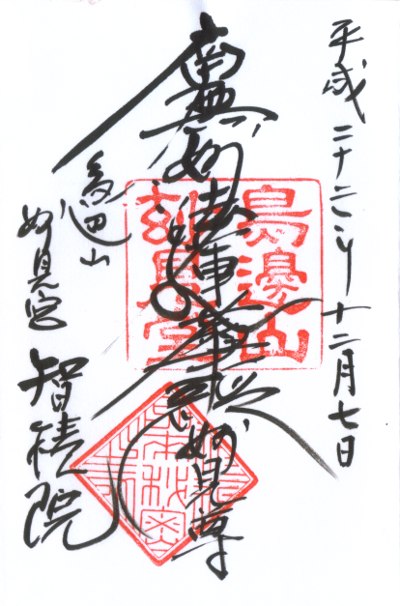 平成二十二年十二月七日
南無妙法蓮華経
妙見尊
鳥辺山
妙見宮
智積院
鳥邊山
妙見堂